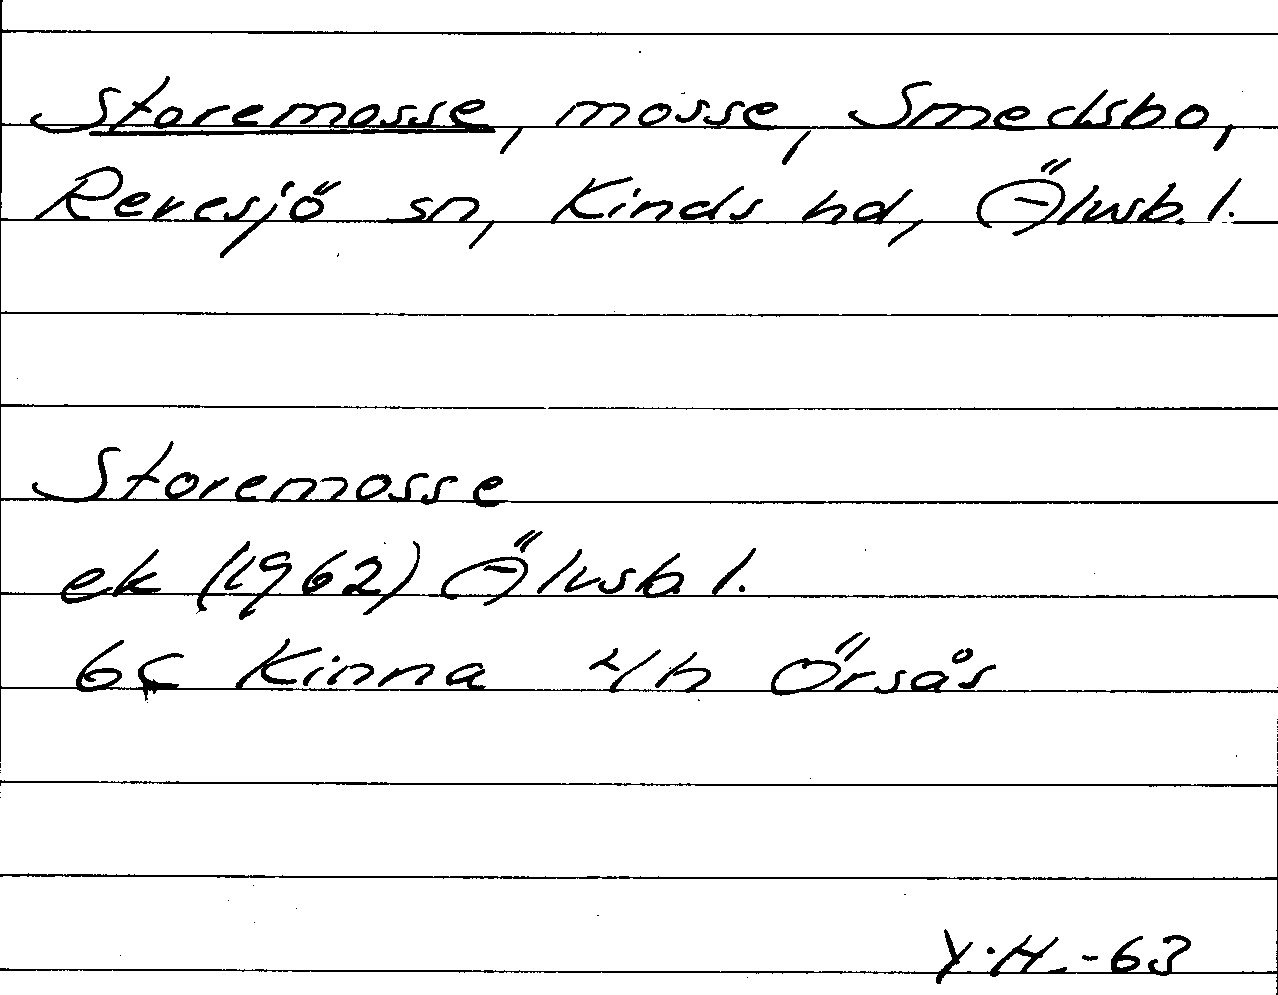 Storemosse, mosse, Smedsbo,
Revesjö sn, Kinds hd, Älvsb. l.
Storemosse
ek (1962) Älvsb. l.
6C Kinna v/h Örsås
Y.H.-63